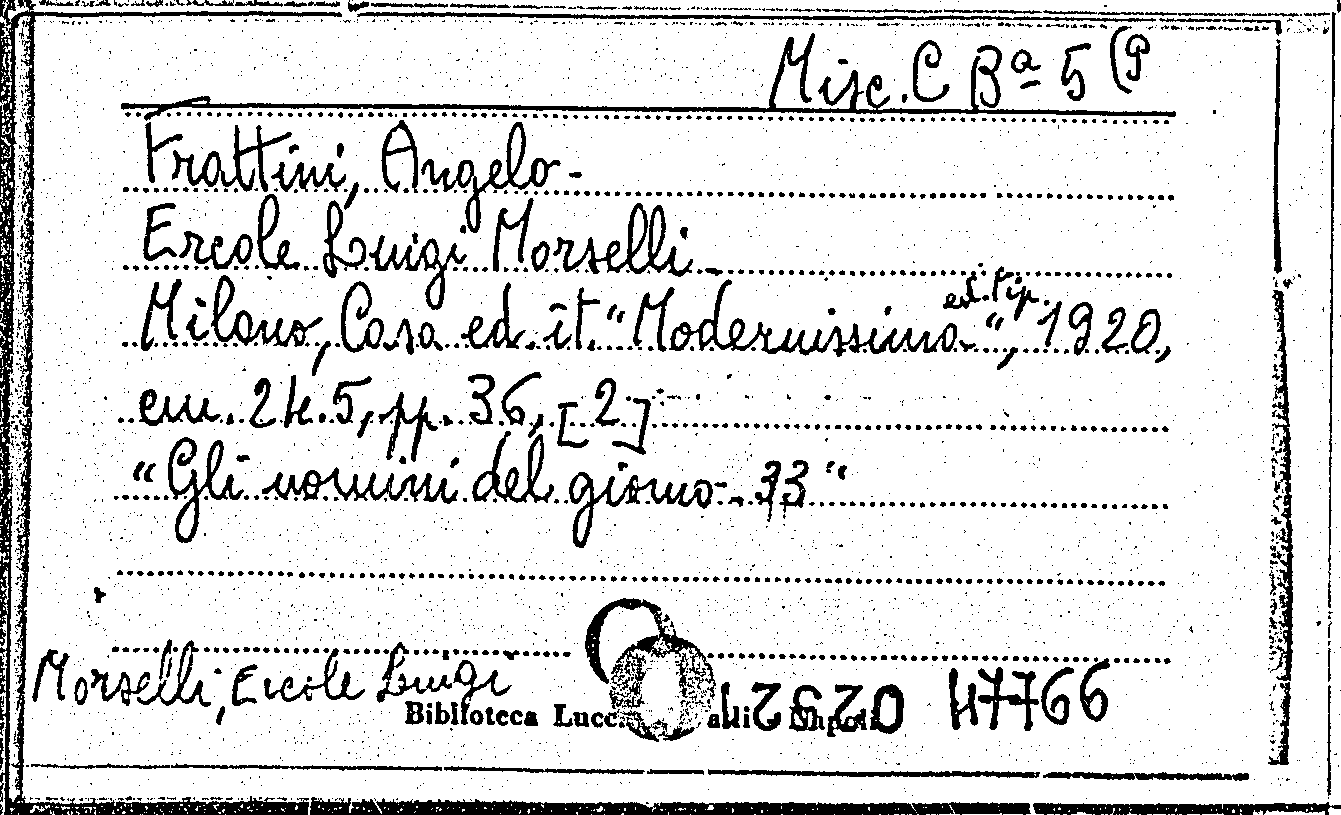 Misc. C Bª 5 (9
Frattini, Angelo -
Ercole Luigi Morselli -
ed. tip.
Milano, Casa ed. it. “Modernissima“, 1920,
cm. 24.5, pp. 36, [2]
“Gli uomini del giorno - 33“
Morselli, Ercole Luigi
Biblioteca Napoli
47766